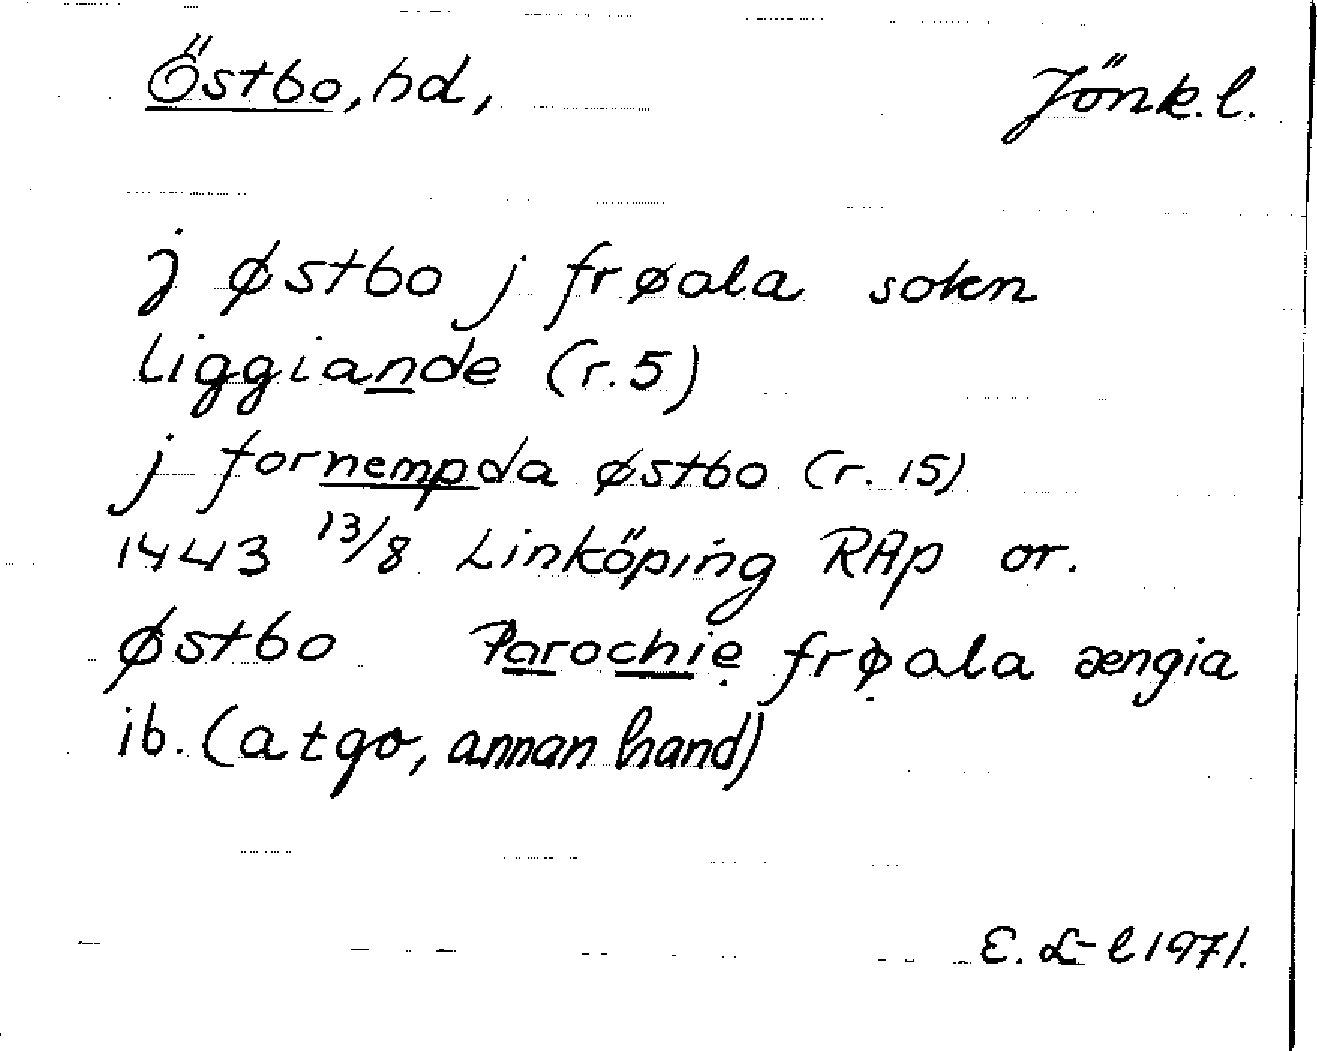 Östbo, hd, Jönk. l.
j østbo j frøala sokn
liggiande (r. 5)
j fornempda østbo (r. 15)
1443 13/8 Linköping RAp or.
østbo Parochie frøala ængia
ib. (atgo, annan hand)
E. L-l 1971.